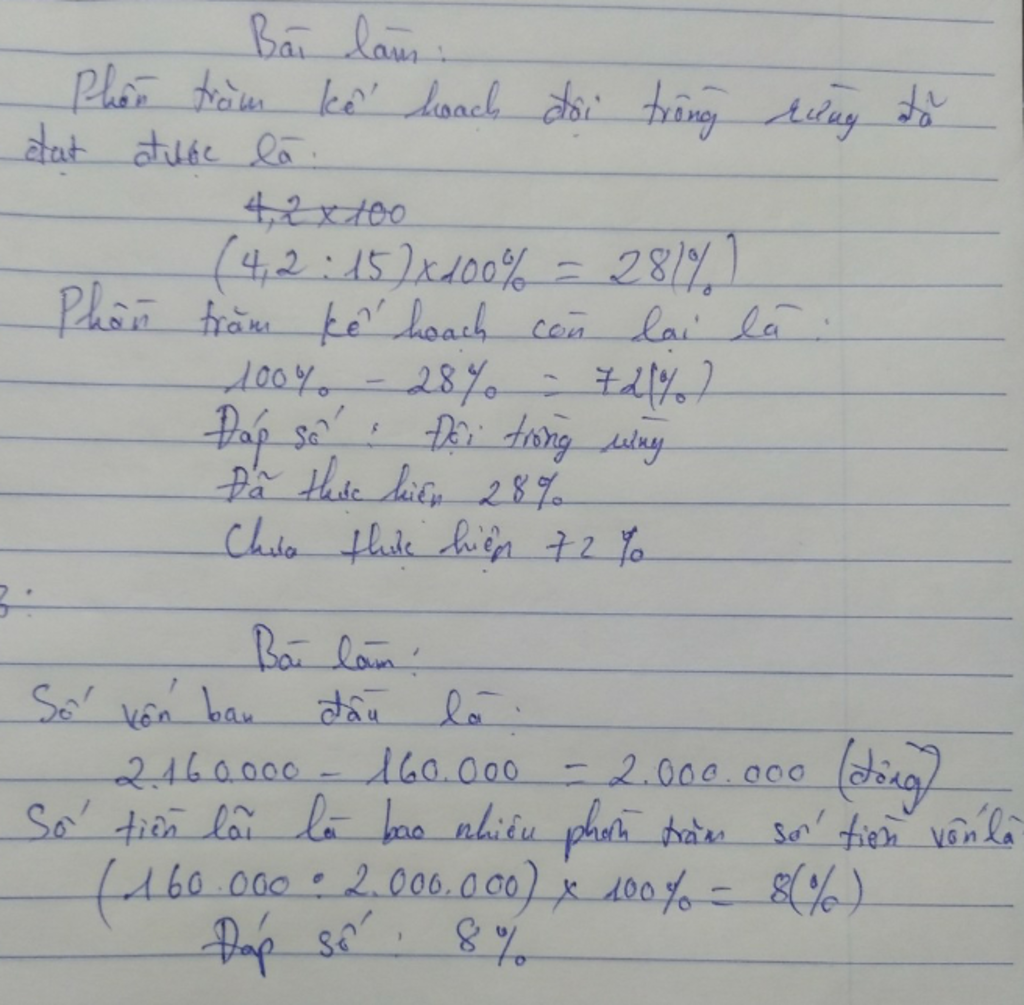 Bài làm:
Phần trăm kế hoạch đội trồng rừng đã
đạt được là:
4,2 x 100
(4,2 : 15) x 100% = 28(%)
Phần trăm kế hoạch còn lại là:
100% - 28% = 72(%)
Đáp số: Đội trồng rừng
Đã thực hiện 28%
Chưa thực hiện 72%
3:
Bài làm:
Số vốn ban đầu là:
2.160.000 - 160.000 = 2.000.000 (đồng)
Số tiền lãi là bao nhiêu phần trăm số tiền vốn là
(160.000 : 2.000.000) x 100% = 8(%)
Đáp số: 8%